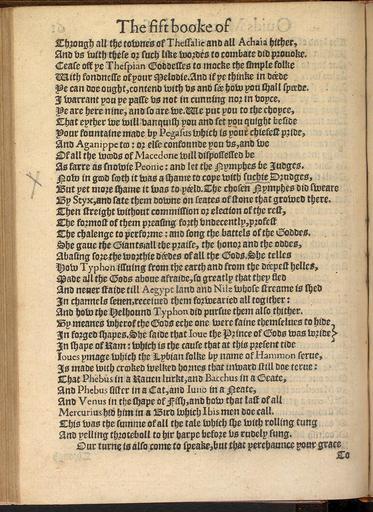 The fift booke of
Through all the townes of Thessalie and all Achaia hither,
And vs with these or such like wordes to combate did prouoke.
Cease off ye Thespian Goddesses to mocke the simple folke
With fondnesse of your Melodie. And if ye thinke in deede
Ye can doe ought, contend with vs and see how you shall speede.
I warrant you ye passe vs not in cunning nor in voyce.
Ye are here nine, and so are we. We put you to the choyce,
That eyther we will vanquish you and set you quight beside
Your fountaine made by Pegasus which is your chiefest pride,
And Aganippe too: or else confounde you vs, and we
Of all the woods of Macedone will dispossessed be
As farre as snowie Peonie: and let the Nymphes be Judges.
Now in good soth it was a shame to cope with suchie Drudges,
But yet more shame it was to yeeld. The chosen Nymphes did sweare
By Styx, and sate them downe on seates of stone that growed there.
Then streight without commission or election of the rest,
The formost of them preasing forth vndecently, profest
The chalenge to performe: and song the battels of the Goddes.
She gaue the Giants all the praise, the honor and the oddes,
Abasing sore the worthie deedes of all the Gods. She telles
How Typhon issuing from the earth and from the deepest helles,
Made all the Gods aboue afraide, so greatly that they fled
And neuer staide till Aegypt land and Nile whose streame is shed
In channels seuen, receiued them forwearied all togither:
And how the Helhound Typhon did pursue them also thither.
By meanes wherof the Gods eche one were faine themselues to hide
In forged shapes. She saide that Ioue the Prince of Gods was wride
In shape of Ram: which is the cause that at this present tide
Ioues ymage which the Lybian folke by name of Hammon serue,
Is made with croked welked hornes that inward still doe terue:
That Phebus in a Rauen lurkt, and Bacchus in a Geate,
And Phebus sister in a Cat, and Iuno in a Neate,
And Venus in the shape of Fish, and how that last of all
Mercurius hid him in a Bird which Ibis men doe call.
This was the summe of all the tale which she with rolling tung
And yelling throteboll to hir harpe before vs rudely sung.
Our turne is also come to speake, but that perchaunce your grace
To